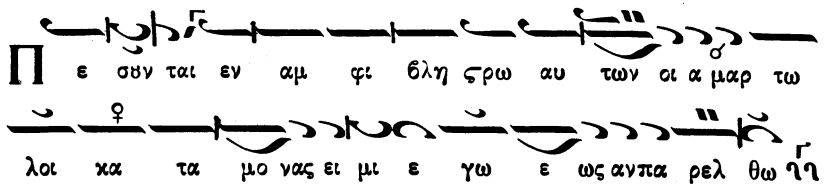 Π ε σȣν ται εν αμ φι βλη ςρω αυ των οι α μαρ τω
λοι κα τα μο νας ει μι ε γω ε ως αν πα ρελ θω ηη